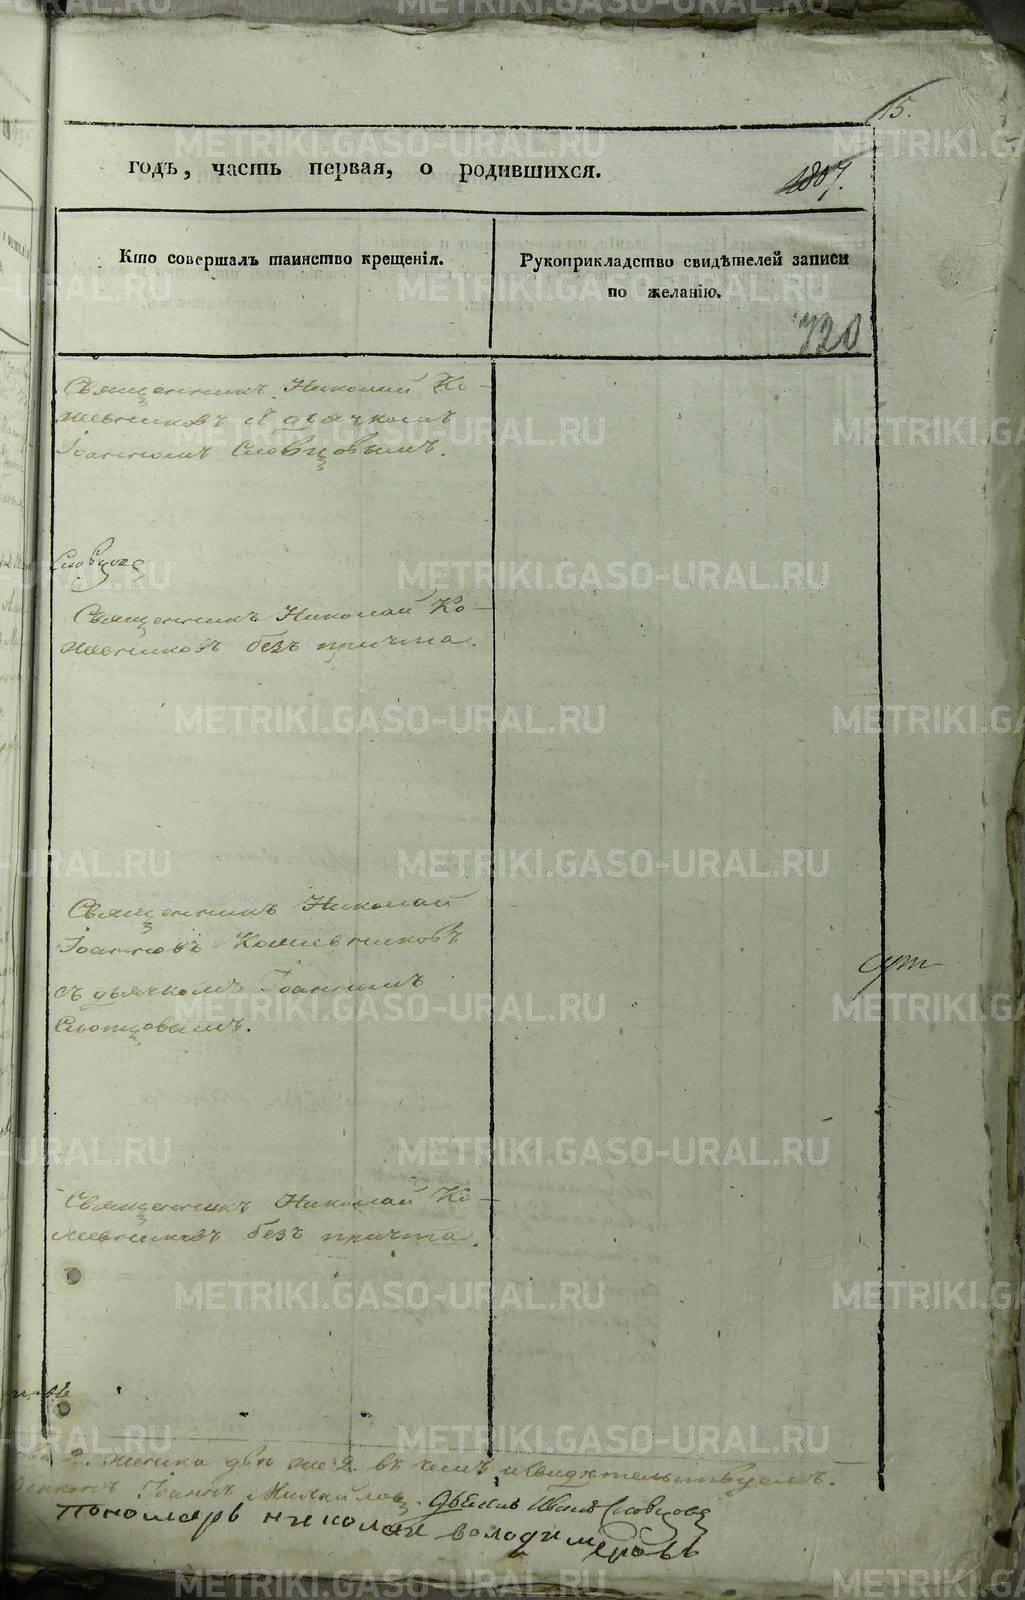 15.
годъ, часть первая, о родившихся.
1807.
Кто совершалъ таинство крещенія.
Рукоприкладство свидѣтелей записи
по желанію.
720
Священникъ Николай Ко-
жевниковъ съ дьячкомъ
Іоанномъ Словцовымъ.
Словцовъ
Священникъ Николай Ко-
жевниковъ безъ причта.
Священникъ Николай
Іоанновъ Кожевниковъ
съ дьячкомъ Іоанномъ
Словцовымъ.
Священникъ Николай Ко-
жевниковъ безъ причта.
2. женска двѣ 2. въ чемъ и свидѣтельствуемъ.
Іоаннъ Михайловъ. Дьячекъ Иванъ Словцовъ
Пономарь николай володимеровъ
METRIKI.GASO-URAL.RU